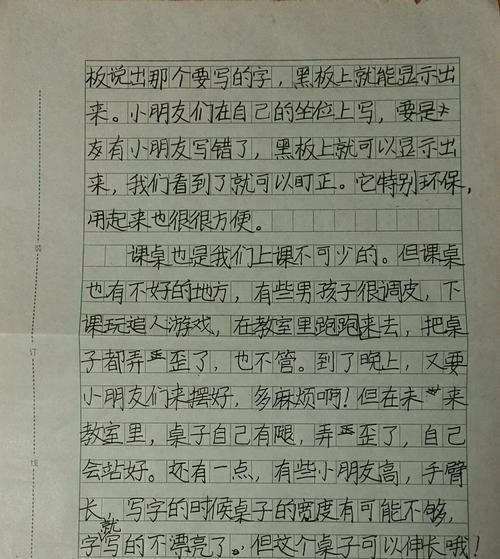 板说出那个要写的字，黑板上就能显示出
来。小朋友们在自己的坐位上写，要是
有小朋友写错了，黑板上就可以显示出
来，我们看到了就可以盯正。它特别环保，
用起来也很很方便。
课桌也是我们上课不可少的。但课桌
也有不好的地方，有些男孩子很调皮，下
课玩追人游戏，在教室里跑跑来去，把桌
子都弄歪了，也不管。到了晚上，又要
小朋友们来摆好，多麻烦啊！但在未来
教室里，桌子自己有腿，弄歪了，自己
会站好。还有一点，有些小朋友高，手臂
长，写字的时候桌子的宽度有可能不够，
字就写的不漂亮了。但这个桌子可以伸长哦！
装
订
线